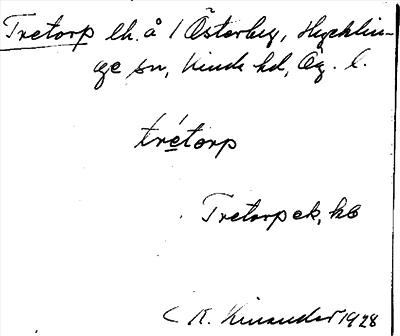 Tretorp lh. å 1 Österby, Hycklin-
ge sn, Kinda hd, Ög. l.
trétorp
Tretorp ek, kb
R. Kinander 1928